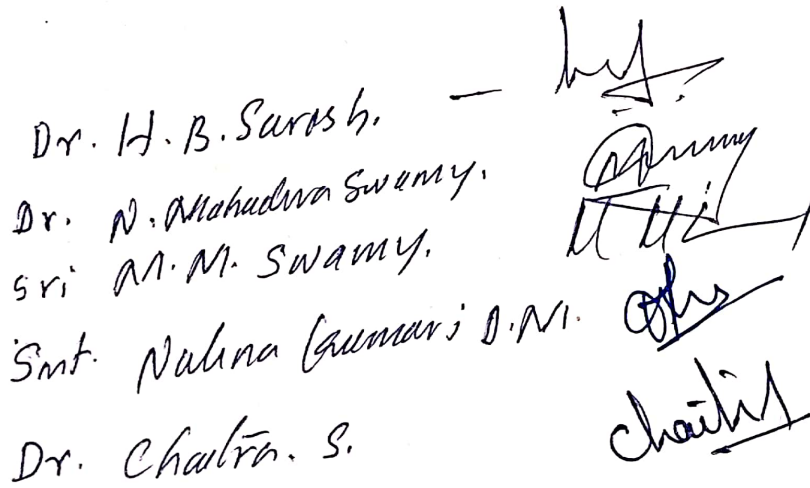 Dr. H. B. Suresh. -
Dr. N. Mahadeva Swamy.
Sri M. M. Swamy.
Smt. Nalina Kumari D. M.
Dr. Chaitra. S. Chaitra